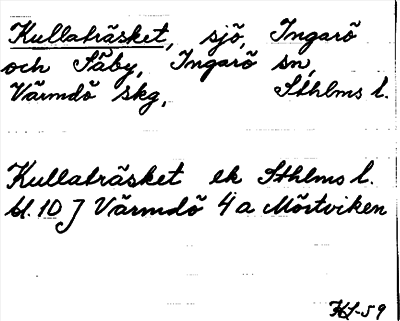 Kullaträsket, sjö, Ingarö
och Säby, Ingarö sn,
Värmdö skg, Sthlms l.
Kullaträsket ek Sthlms l.
bl. 10 J Värmdö 4 a Mörtviken
HJ-59